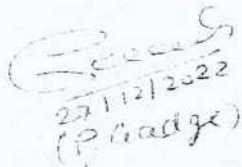 27/12/2022
(P Gadge)